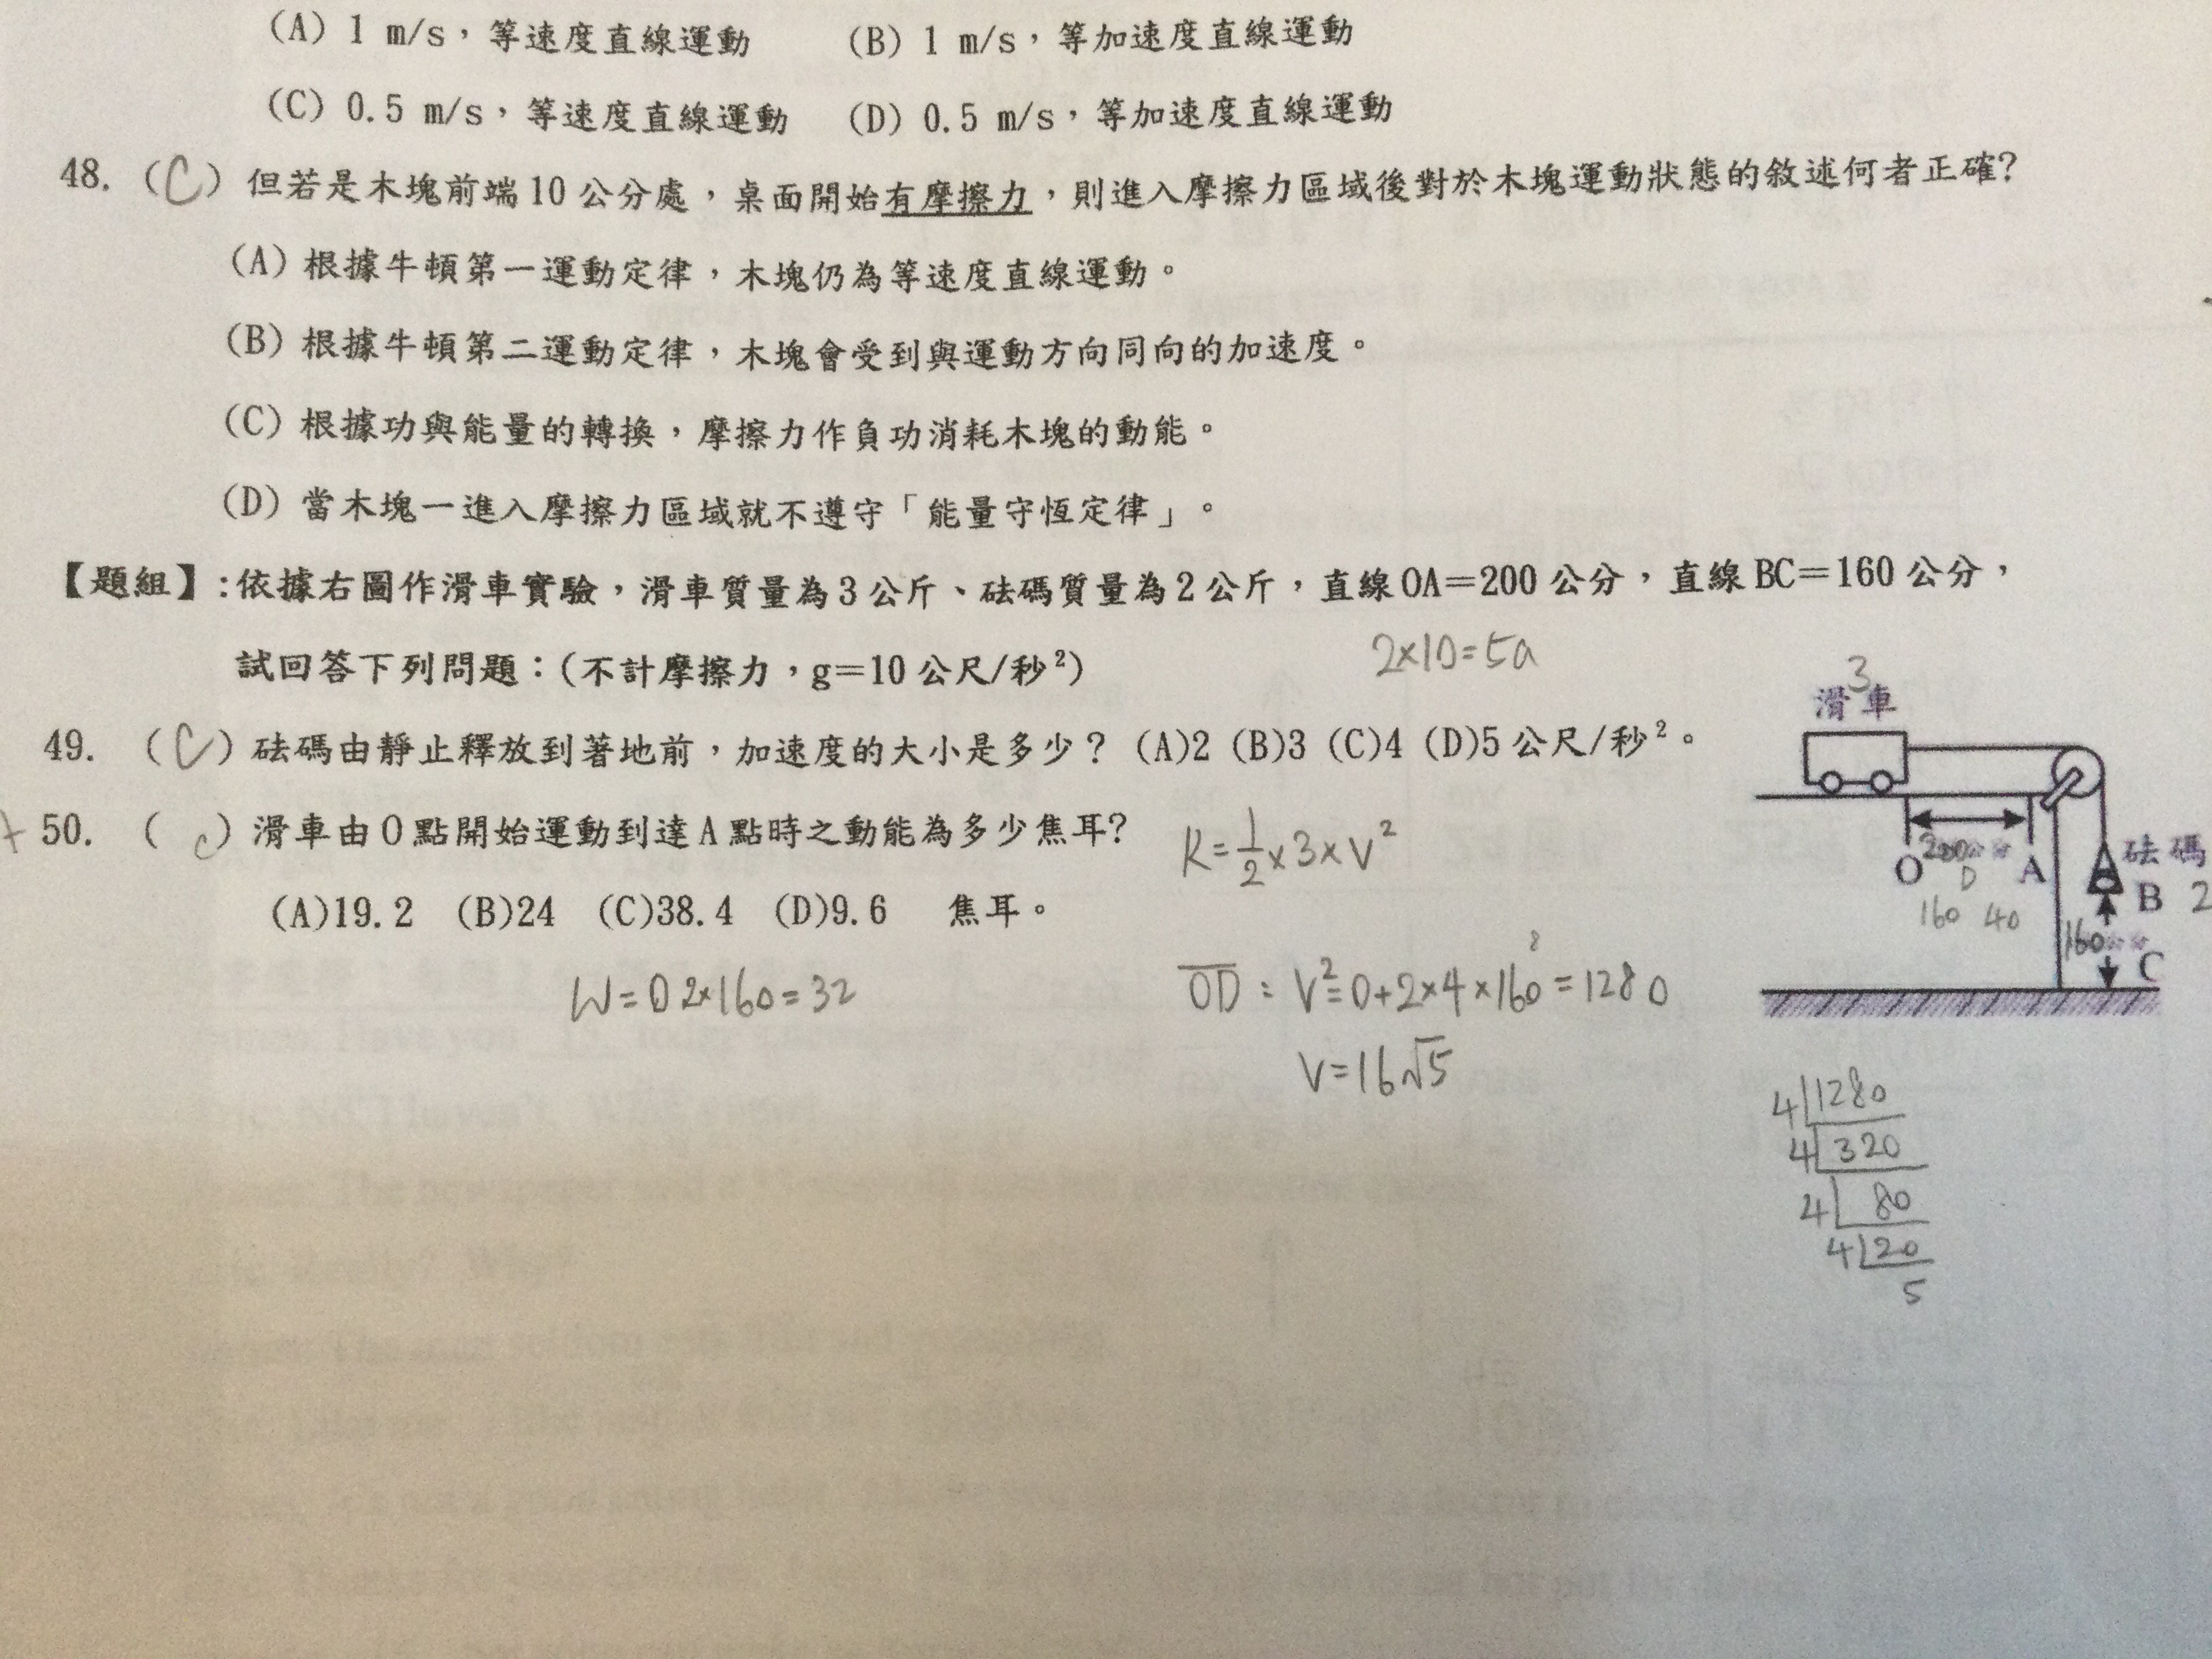 (A) 1 m/s，等速度直線運動　(B) 1 m/s，等加速度直線運動
(C) 0.5 m/s，等速度直線運動　(D) 0.5 m/s，等加速度直線運動
48. (C) 但若是木塊前端10公分處，桌面開始有摩擦力，則進入摩擦力區域後對於木塊運動狀態的敘述何者正確?
(A) 根據牛頓第一運動定律，木塊仍為等速度直線運動。
(B) 根據牛頓第二運動定律，木塊會受到與運動方向同向的加速度。
(C) 根據功與能量的轉換，摩擦力作負功消耗木塊的動能。
(D) 當木塊一進入摩擦力區域就不遵守「能量守恆定律」。
【題組】:依據右圖作滑車實驗，滑車質量為3公斤、砝碼質量為2公斤，直線OA=200公分，直線BC=160公分，
試回答下列問題：(不計摩擦力，g=10公尺/秒²)
2×10=5a
3
滑車
49. (C) 砝碼由靜止釋放到著地前，加速度的大小是多少？ (A)2 (B)3 (C)4 (D)5公尺/秒²。
50. (c) 滑車由O點開始運動到達A點時之動能為多少焦耳?
K=½×3×V²
(A)19.2 (B)24 (C)38.4 (D)9.6 焦耳。
O 200 A
D
160 40
砝碼
B 2
160
C
W=0.2×160=32
OD : V²=0+2×4×160=1280
8
V=16√5
4 1280
4 320
4 80
4 20
5